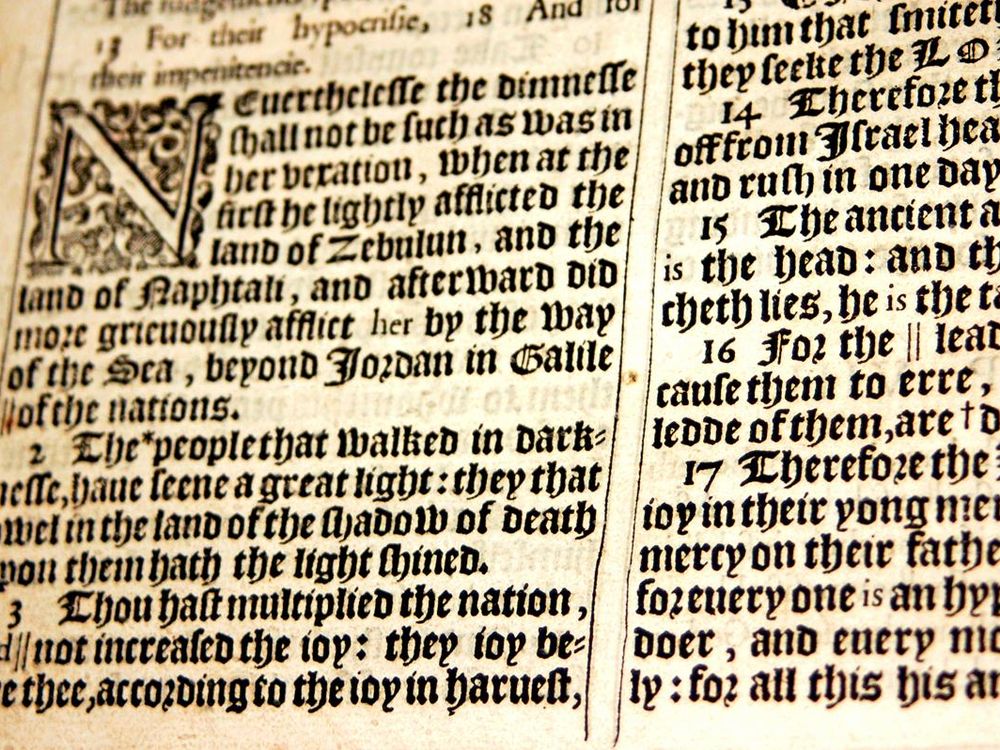 13 For their hypocrisie, 18 And for
their impenitencie.
NEuerthelesse the dimnesse
shall not be such as was in
her vexation, when at the
first he lightly afflicted the
land of Zebulun, and the
land of Naphtali, and afterward did
more grieuously afflict her by the way
of the Sea, beyond Jordan in Galile
||of the nations.
2 The*people that walked in dark-
nesse, haue seene a great light: they that
wel in the land of the shadow of death
pon them hath the light shined.
3 Thou hast multiplied the nation,
d||not increased the ioy: they ioy be-
e thee, according to the ioy in haruest,
to him that smiteth
they seeke the LO
14 Therefore th
off from Israel hea
and rush in one day
15 The ancient a
is the head: and th
cheth lies, he is the ta
16 For the || lead
cause them to erre,
ledde of them, are † d
17 Therefore the
ioy in their yong men
mercy on their fathe
for euery one is an hyp
doer, and euery mo
ly: for all this his an